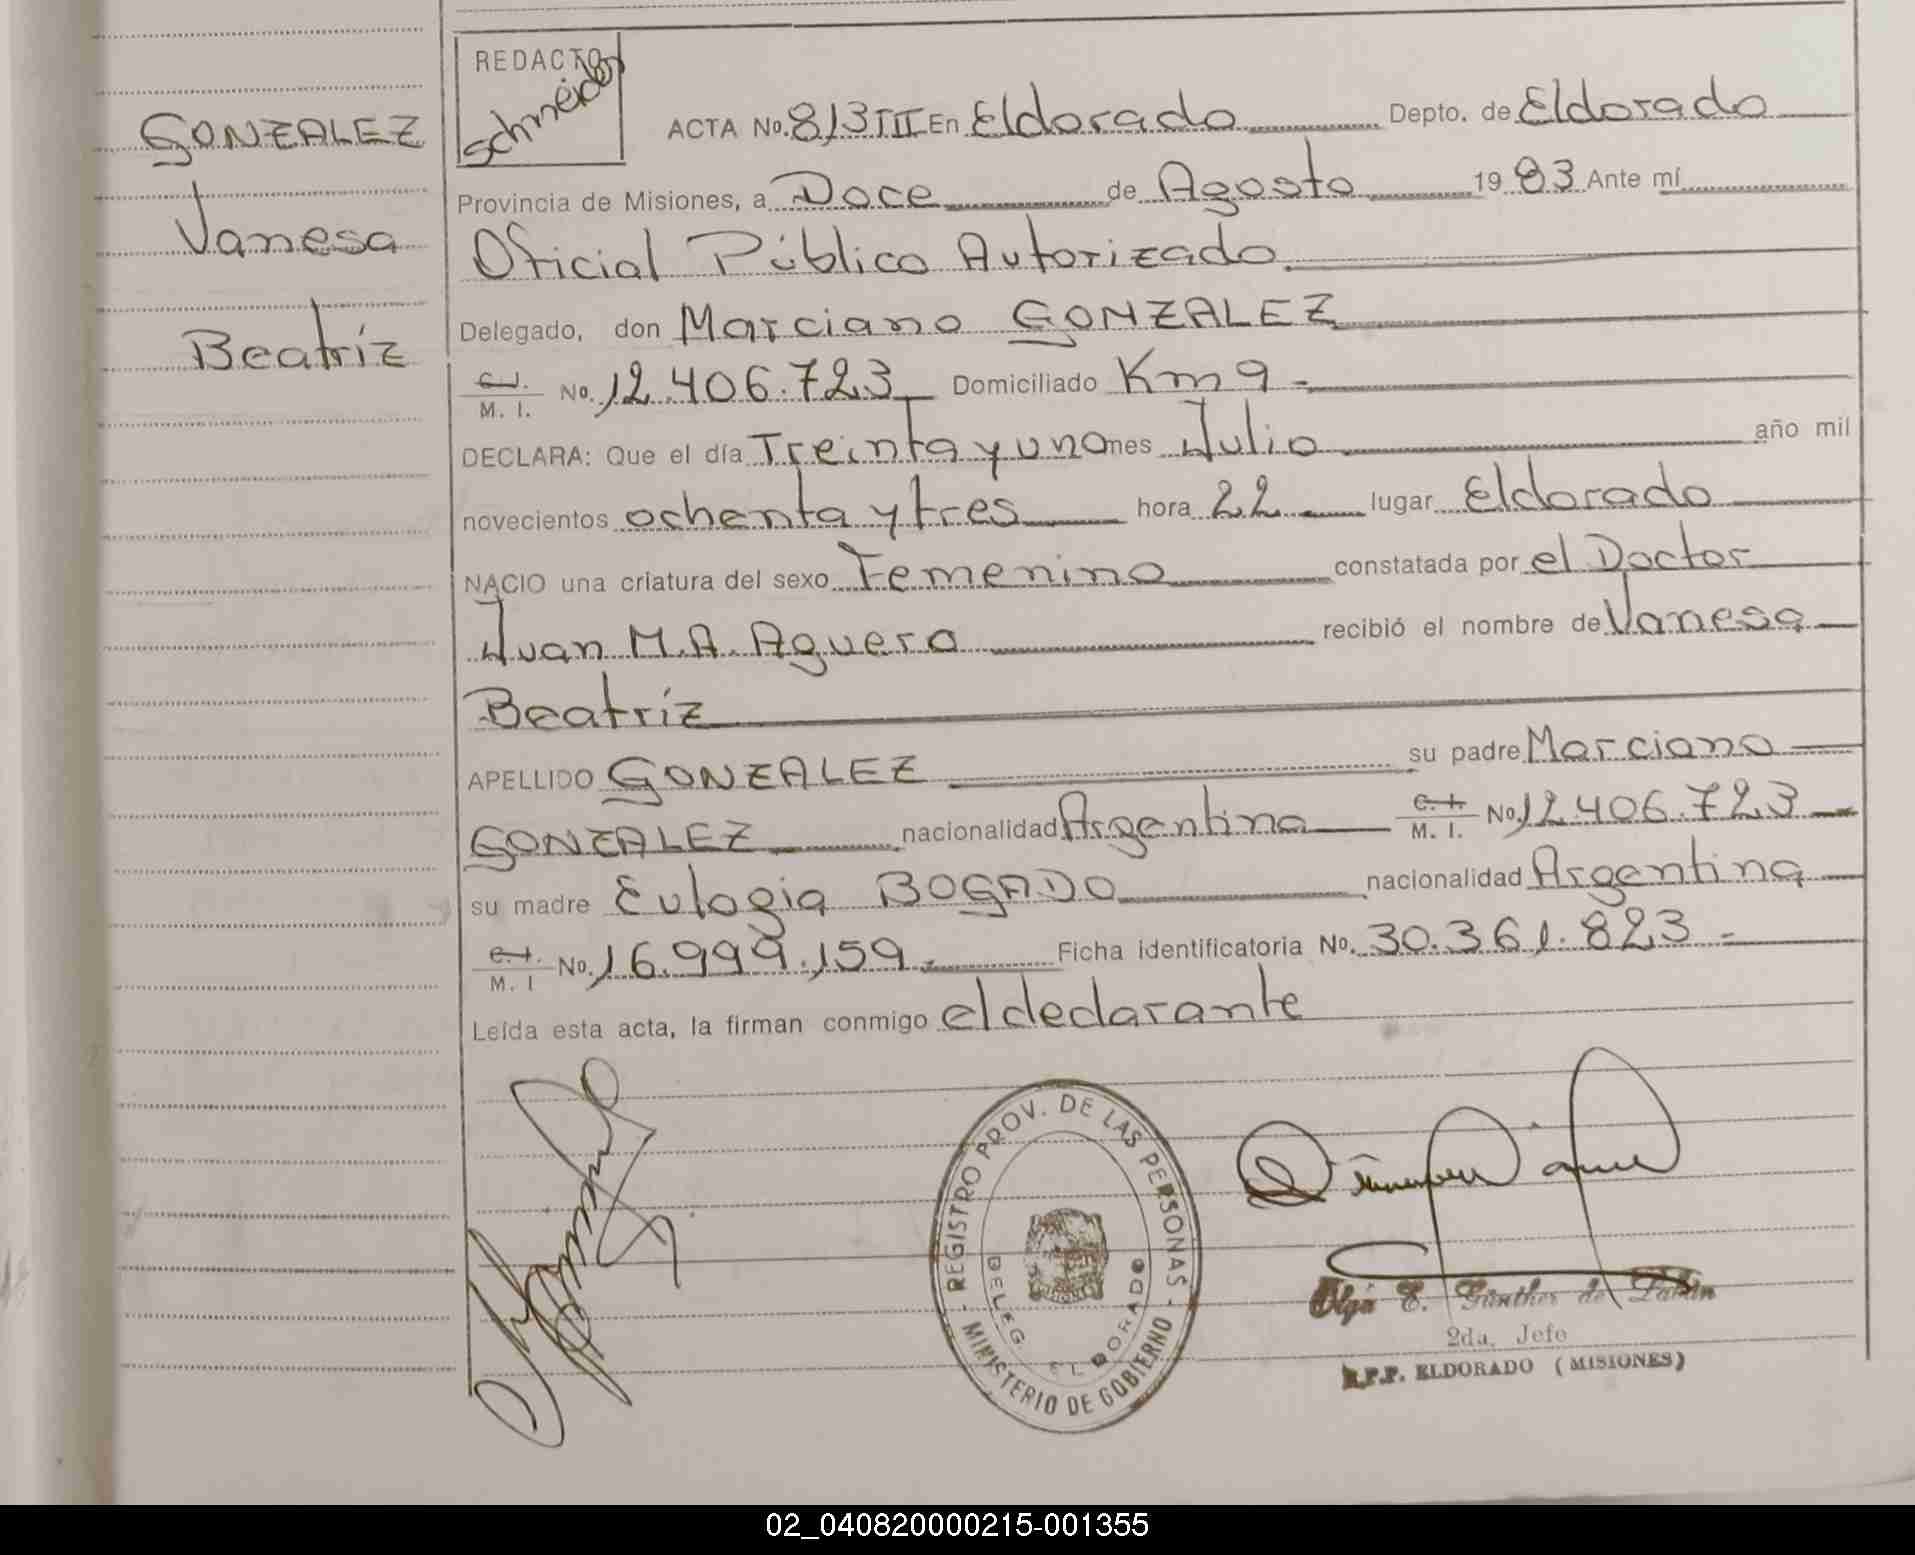 GONZALEZ
Vanesa
Beatríz
REDACTO
Schneider
ACTA No. 813 III En Eldorado Depto. de Eldorado
Provincia de Misiones, a Doce de Agosto 19 83 Ante mí
Oficial Público Autorizado
Delegado, don Marciano GONZALEZ
C. I. M. I. No. 12.406.723 Domiciliado Km 9 -
DECLARA: Que el día Treinta y uno mes Julio año mil
novecientos ochenta y tres hora 22 lugar Eldorado
NACIO una criatura del sexo Femenino constatada por el Doctor
Juan M.A. Aguero recibió el nombre de Vanesa
Beatríz
APELLIDO GONZALEZ su padre Marciano
GONZALEZ nacionalidad Argentina C. I. M. I. No. 12.406.723
su madre Eulogia BOGADO nacionalidad Argentina
C. I. M. I No. 16.999.159 Ficha identificatoria No. 30.361.823 -
Leída esta acta, la firman conmigo el declarante
- REGISTRO PROV. DE LAS PERSONAS -
MINISTERIO DE GOBIERNO
DELEG. ELDORADO
Olga E. Günther de
2da. Jefe
R.P.P. ELDORADO (MISIONES)
02_040820000215-001355